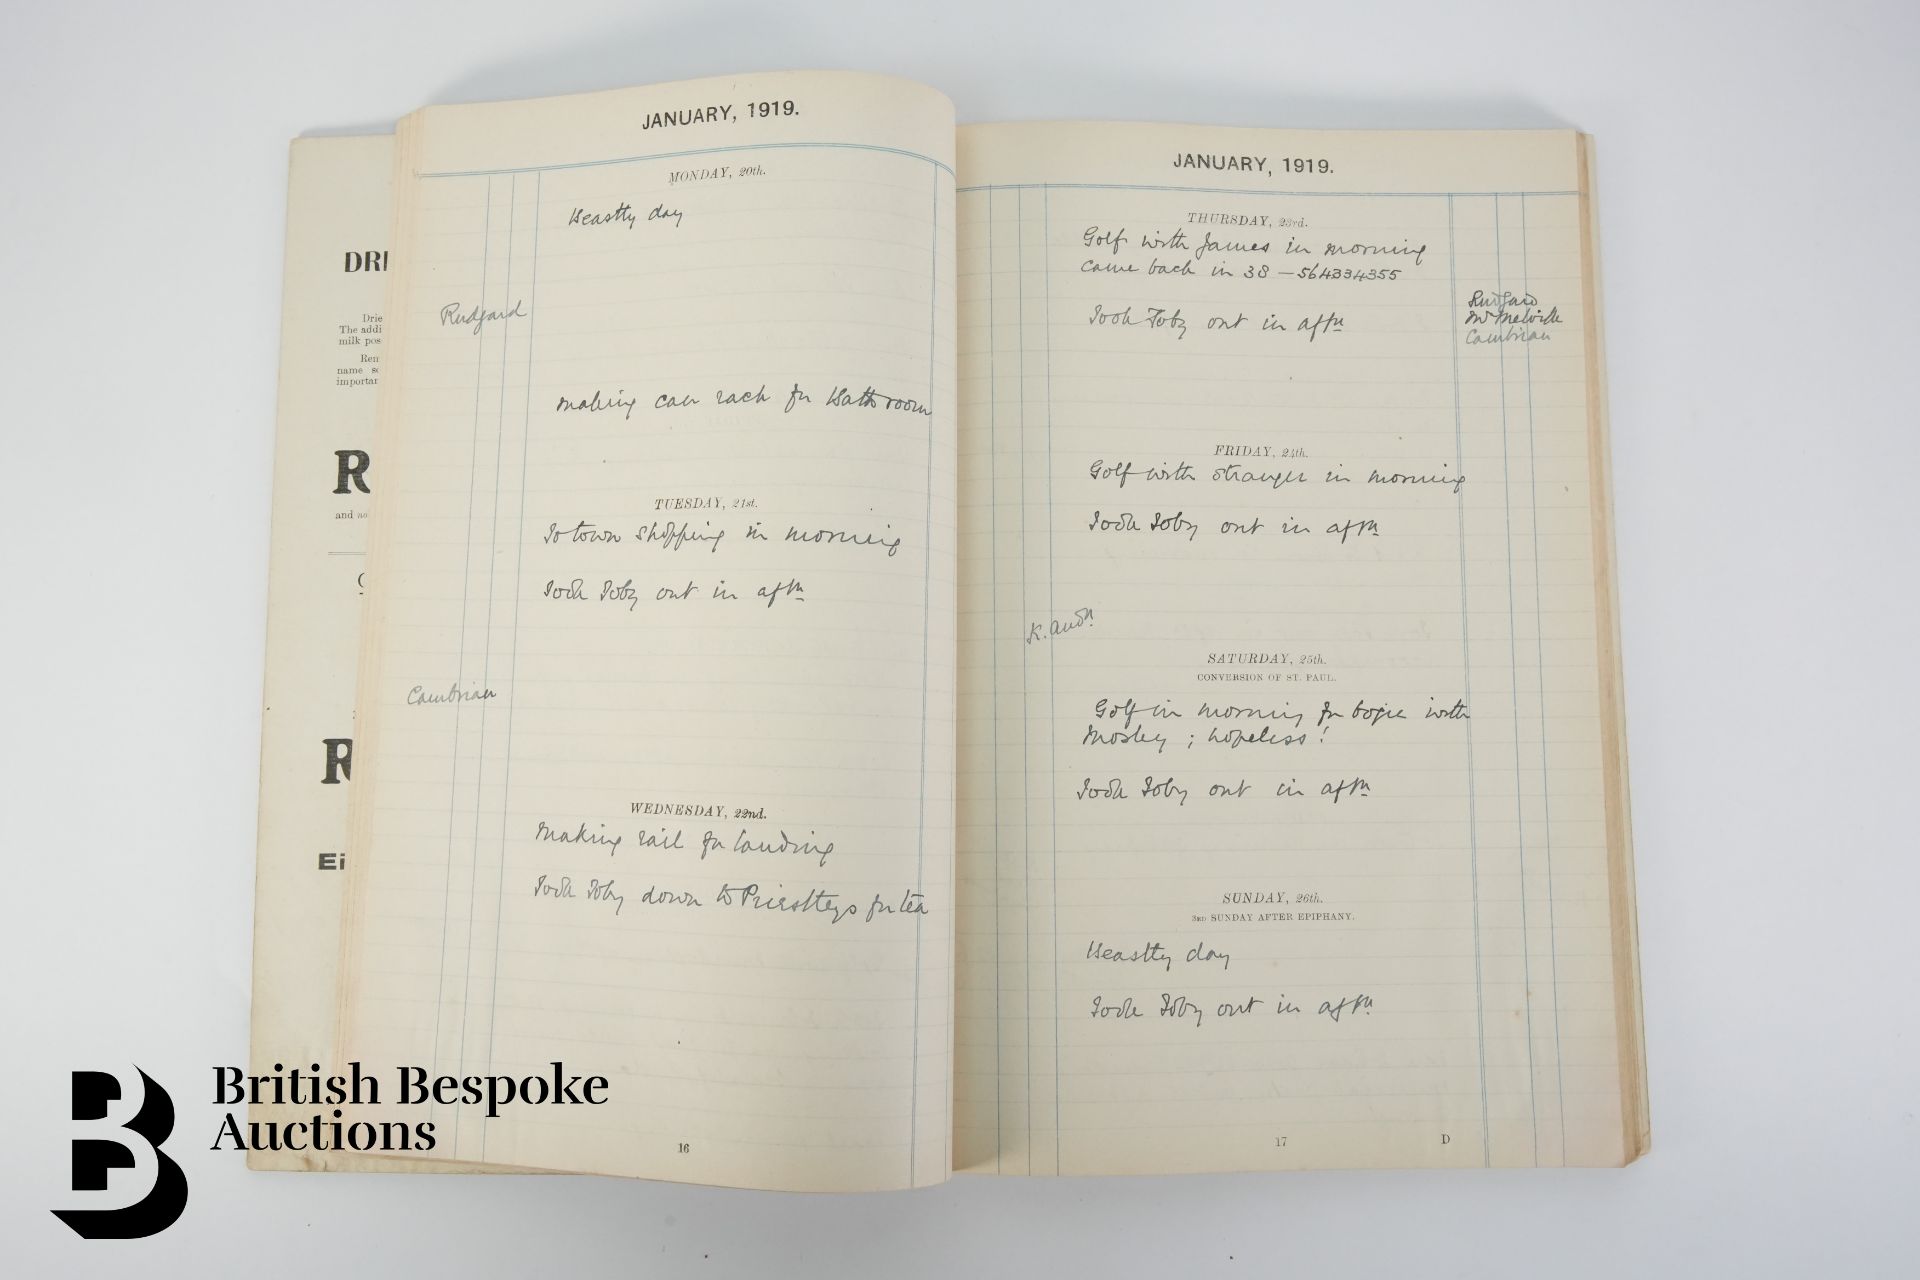 DRI
Drie
The addi
milk pos
Ren
name se
importan
R
and no
R
Ei
JANUARY, 1919.
MONDAY, 20th.
Beastly day
Rudyard
making can rack for Bathroom
TUESDAY, 21st.
To town shopping in morning
Took Toby out in aftn
Cambrian
WEDNESDAY, 22nd.
Making rail for landing
Took Toby down to Priestleys for tea
16
JANUARY, 1919.
THURSDAY, 23rd.
Golf with James in morning
came back in 38 – 564334355
Took Toby out in aftn
Rudyard
Mr Melville
Cambrian
FRIDAY, 24th.
Golf with stranger in morning
Took Toby out in aftn
K. and
SATURDAY, 25th.
CONVERSION OF ST. PAUL.
Golf in morning for bogie with
Mosley ; hopeless !
Took Toby out in aftn
SUNDAY, 26th.
3RD SUNDAY AFTER EPIPHANY.
Beastly day
Took Toby out in aftn
17
D
British Bespoke
Auctions